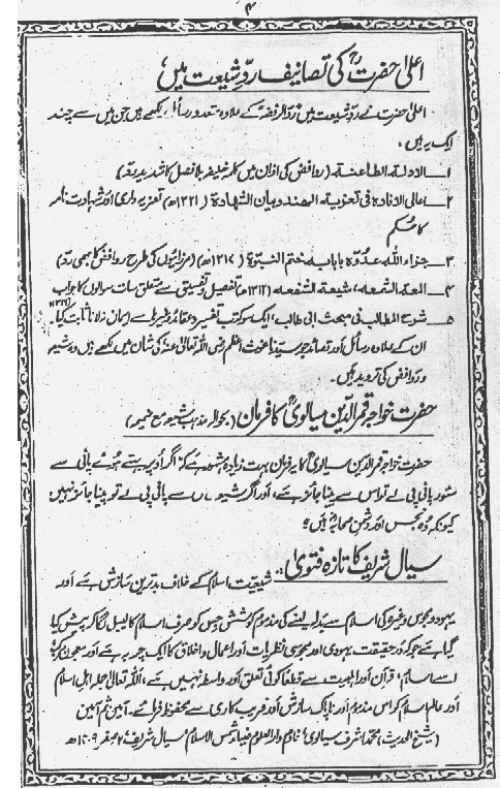 ۴
اعلیٰ حضرتؒ کی تصانیف ردِّ شیعت میں
اعلیٰ حضرت نے ردِّ شیعت میں ردّالرفضہ کے علاوہ متعدد رسائل لکھے ہیں جن میں سے چند
ایک یہ ہیں۔
۱۔ الادلۃ الطاعنہ (روافض کی اذان میں کلمہ خلیفہ بلا فصل کا شدید رد)
۲۔ اعالی الافادہ فی تعزیۃ الہند وبیان الشہادۃ (۱۳۲۱ھ) تعزیہ داری اور شہادت نامہ
کا حکم
۳۔ جزاء اللّٰہ عدوّہ باباہ ختم النبوۃ (۱۳۱۷ھ) (مرزائیوں کی طرح روافض کا بھی رد)
۴۔ المعۃ الشمعہ، شیعۃ الشفعہ (۱۳۱۲ھ) تفضیل و تفسیق سے متعلق سات سوالوں کا جواب
۵۔ شرح المطالب فی مبحث ابی طالب، ایک سو کتب تفسیر و عقائد وغیرہا سے ایمان نہ لانا ثابت کیا
ان کے علاوہ رسائل اور قصائد جو سیدنا غوث اعظم رضی اللہ تعالیٰ عنہ کی شان میں لکھے ہیں وہ شیعہ
و روافض کی تردید ہیں۔
حضرت خواجہ قمر الدّین سیالویؒ کا فرمان (بحوالہ مذہب شیعہ مع ضمیمہ)
حضرت خواجہ قمر الدین سیالویؒ کا یہ فرمان بہت زیادہ مشہور ہے کہ اگر اوپر بہتے ہوئے پانی سے
سؤر پانی پی لے تو اس سے پینا جائز ہے، اور اگر شیعہ وہاں سے پانی پی لے تو پینا جائز نہیں
کیونکہ وہ نجس اور دشمنِ صحابہؓ ہیں؛
سیال شریف کا تازہ فتویٰ: شیعیت اسلام کے خلاف بدترین سازش ہے اور
یہود و مجوس وغیرہ کی اسلام سے بدلہ لینے کی مذموم کوشش جس کو صرف اسلام کا لیبل لگا کر پیش کیا
گیا ہے جو کہ درحقیقت یہودی اور مجوسی نظریات اور اعمال و اخلاق کا ایک چربہ ہے اور معجون مرکب
اسے اسلام، قرآن اور اہلبیت سے قطعاً کوئی تعلق اور واسطہ نہیں ہے، اللہ تعالیٰ جملہ اہل اسلام
اور عالم اسلام کو اس مذموم اور ناپاک سازش اور فریب کاری سے محفوظ فرمائے۔ آمین ثم آمین
(شیخ الحدیث) محمد اشرف سیالوی خادم دارالعلوم ضیاء شمس الاسلام سیال شریف ۷ صفر ۱۴۰۹ھ